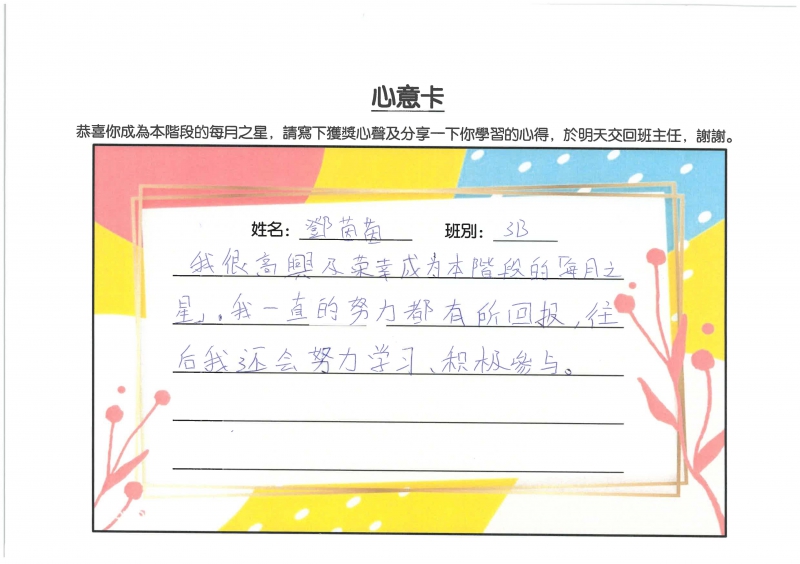 心意卡
恭喜你成為本階段的每月之星，請寫下獲獎心聲及分享一下你學習的心得，於明天交回班主任，謝謝。
姓名：鄧茵茵 班別：3B
我很高興及荣幸成为本階段的「每月之
星」，我一直的努力都有所回报，往
后我还会努力学习、积极參与。